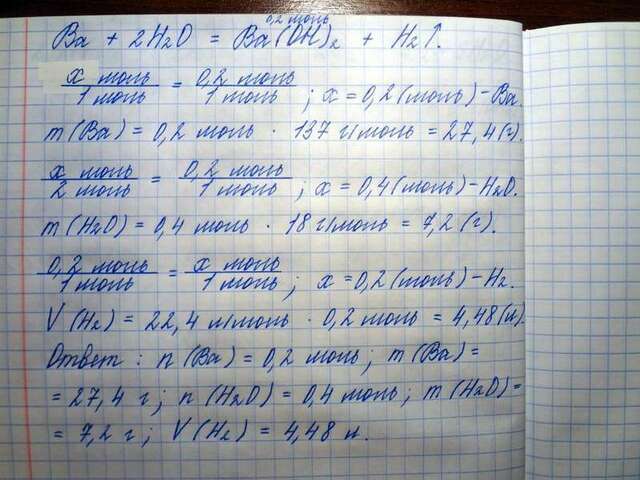 0,2 моль
Ba + 2H₂O = Ba(OH)₂ + H₂↑.
x моль / 1 моль = 0,2 моль / 1 моль ; x = 0,2 (моль) – Ba.
m(Ba) = 0,2 моль · 137 г/моль = 27,4 (г).
x моль / 2 моль = 0,2 моль / 1 моль ; x = 0,4 (моль) – H₂O.
m(H₂O) = 0,4 моль · 18 г/моль = 7,2 (г).
0,2 моль / 1 моль = x моль / 1 моль ; x = 0,2 (моль) – H₂.
V(H₂) = 22,4 л/моль · 0,2 моль = 4,48 (л).
Ответ : n(Ba) = 0,2 моль ; m(Ba) =
= 27,4 г ; n(H₂O) = 0,4 моль ; m(H₂O) =
= 7,2 г ; V(H₂) = 4,48 л.